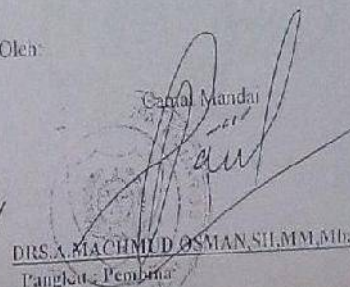 Oleh:
Camat Mandai
DRS.A.MACHMUD OSMAN,SH,MM,Mba
Pangkat : Pembina